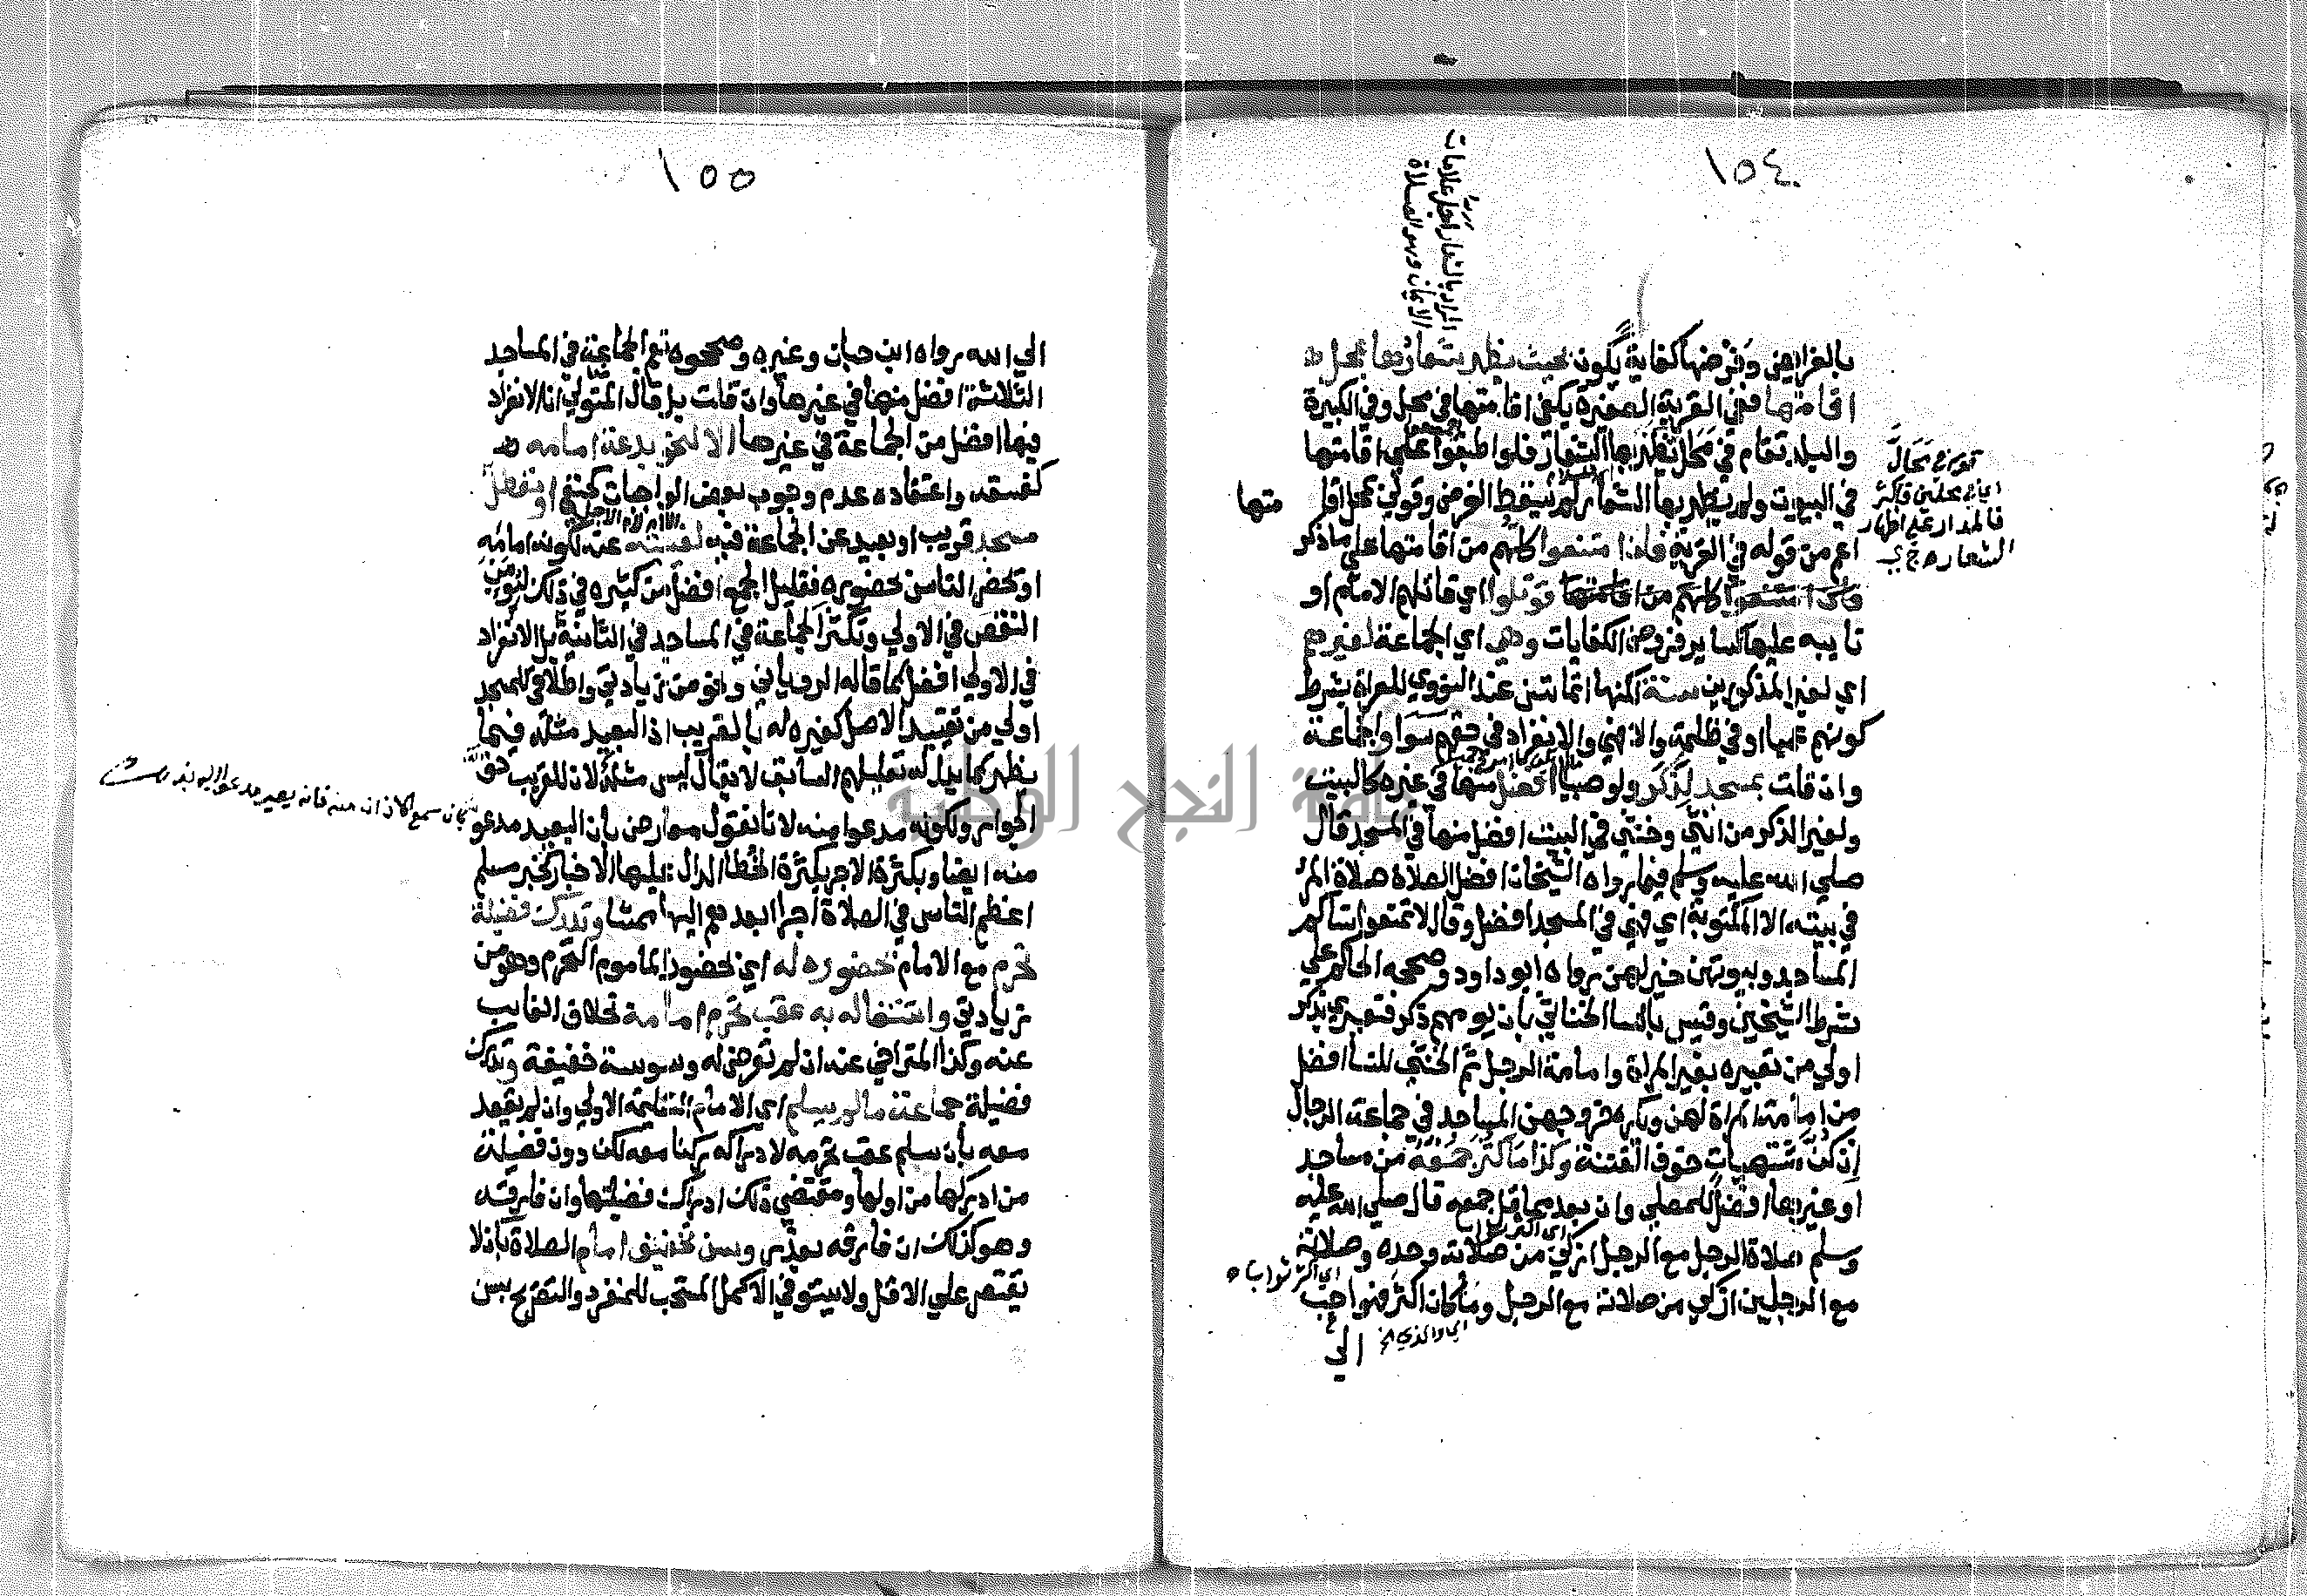 ١٥٤
المراد بالشعار اجل علامات
الايمان وهو الصلاة
بالفرايض وفرضها كفاية يكون بحيث يظهر شعارها بمحل
اقامتها ففي القرية الصغيرة يكفي اقامتها في محل وفي الكبيرة
والبلد تقام في محال يظهر بها الشعار فلو اطبقوا علي اقامتها
في البيوت ولم يظهر بها الشعار لم يسقط الفرض وقولي بمحل اقا
متها
اعم من قوله في القرية فاذا امتنعوا كلهم من اقامتها علي ما ذكر
فاذا امتنعوا كلهم من اقامتها قوتلوا اي قاتلهم الامام او
نايبه عليها كساير فروض الكفايات وهي اي الجماعة لغيرهم
اي لغير المذكورين سنة لكنها انما تسن عند النووي للعراة بشرط
كونهم عميا او في ظلمة والا فهي والانفراد في حقهم سوا والجماعة
وان قلت بمسجد لذكر ولو صبيا افضل منها في غيره كالبيت
ولغير الذكر من انثي وخنثي في البيت افضل منها في المسجد قال
صلي الله عليه وسلم فيما رواه الشيخان افضل الصلاة صلاة المرء
في بيته الا المكتوبة اي فهي في المسجد افضل وقال لا تمنعوا نساكم
المساجد وبيوتهن خير لهن رواه ابو داود وصححه الحاكم علي
شرط الشيخين وقيس بالنسا الخناثي بان يومهم ذكر فتعبيري بذكر
اولي من تعبيره بغير المراة وامامة الرجل ثم الخنثي للنسا افضل
من امامة المراة لهن ويكره خروجهن المساجد في جماعة الرجال
ان كن مشتهيات خوف الفتنة وكذا ما كثر جمعه من مساجد
او غيرها افضل للمصلي وان بعد مما قل جمعه قال صلي الله عليه
اي اكثر ثوابا
وسلم صلاة الرجل مع الرجل ازكي من صلاته وحده وصلاته
اي اكثر ثوابا
مع الرجلين ازكي من صلاته مع الرجل وما كان اكثر فهو احب
اي والذي الخ
الي
قوله في محال
اي في محلين فاكثر
فالمدار علي اظهار
الشعار
١٥٥
الي الله رواه ابن حبان وغيره وصححوه نعم الجماعة في المساجد
الثلاثة افضل منها في غيرها وان قلت بل قال المتولي ان الانفراد
فيها افضل من الجماعة في غيرها الا لنحو بدعة امامه
كفسقه واعتقاده عدم وجوب بعض الواجبات كحنفي او تعطل
مسجد قريب او بعيد عن الجماعة فيه لغيبته عنه لكونه امامه
او يحضر الناس بحضوره فقليل الجمع افضل من كثيره في ذلك ليؤمن
النقص في الاولي وتكثر الجماعة في المساجد في الثانية بل الانفراد
في الاولي افضل كما قاله الروياني وانو من زيادتي واطلاقي للمسجد
اولي من تقييد الاصل كغيره له بالقريب اذ البعيد مثله فيما
يظهر كما يدل له تعليلهم السابق لا يقال ليس مثله لان للقريب حق
الجوار ولكونه مدعوا منه لانا نقول معارض بان البعيد مدعو
منه ايضا وبكثرة الاجر بكثرة الخطا الدال عليها الاخبار كخبر مسلم
اعظم الناس في الصلاة اجرا ابعدهم اليها ممشا وتدرك فضيلة
تحرم مع الامام بحضوره له اي بحضور الماموم التحرم وهو من
زيادتي واشتغاله به عقب تحرم امامه بخلاف الغايب
عنه وكذا المتراخي عنه ان لم تعرض له وسوسة خفيفة وتدرك
فضيلة جماعة ما لم يسلم اي الامام التسليمة الاولي وان لم يقعد
معه بان سلم عقب تحرمه لادراكه ركنا معه لكن دون فضيلة
من ادركها من اولها ومقتضي ذلك ادراك فضيلتها وان فارقه
وهو كذلك ان فارقه بعذر وسن تخفيف امام الصلاة بان لا
يقتصر علي الاقل ولا يستوفي الاكمل المستحب للمنفرد والتصريح بسن
بان سمع الاذان منه فانه يصير مدعوا اليه
جامعة النجاح الوطنية